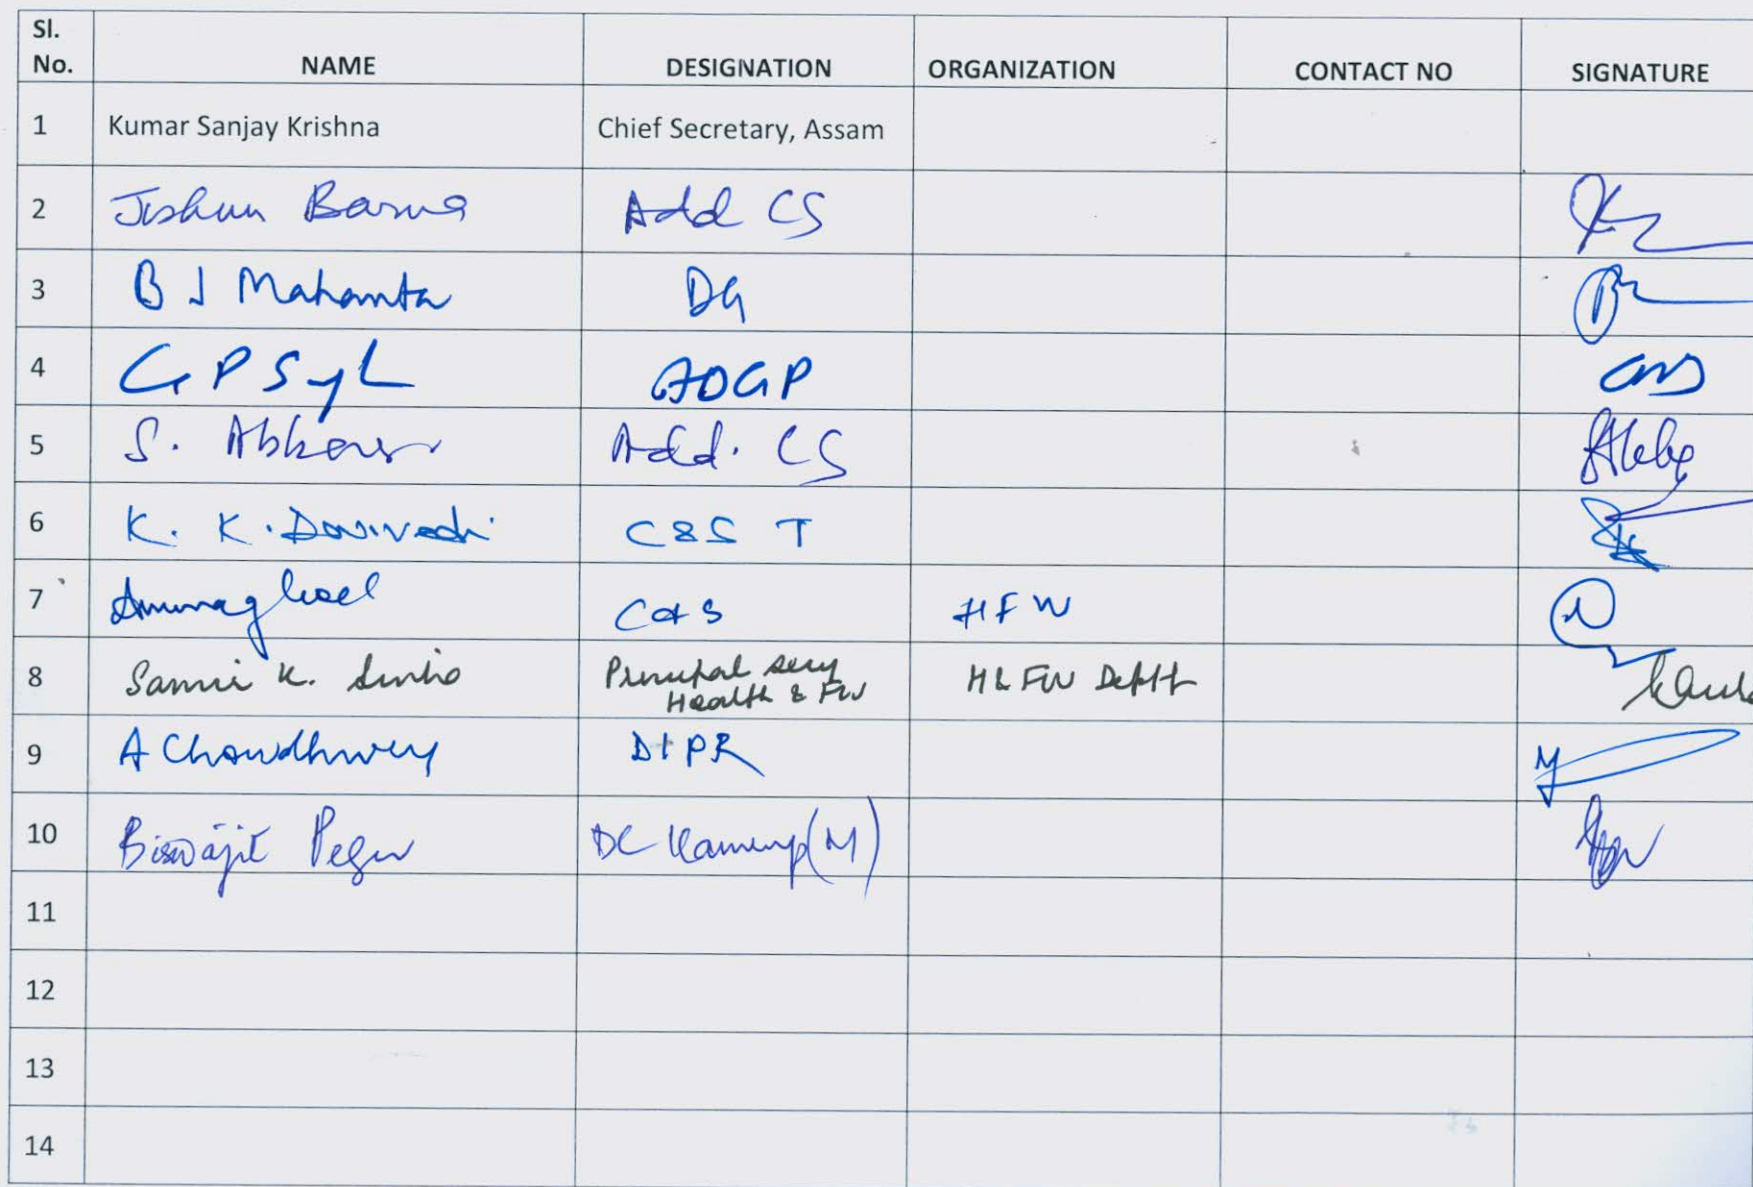 Sl. No. NAME DESIGNATION ORGANIZATION CONTACT NO SIGNATURE
1 Kumar Sanjay Krishna Chief Secretary, Assam
2 Jishnu Barua Add CS
3 B J Mahanta DG
4 G P Singh ADGP
5 S. Abbasi Add. CS
6 K. K. Dwivedi C&S T
7 Anurag Goel C&S HFW
8 Samir K. Sinha Principal Secy Health & FW H & FW Deptt
9 A Chowdhury DIPR
10 Biswajit Pegu DC Kamrup (M)
11
12
13
14